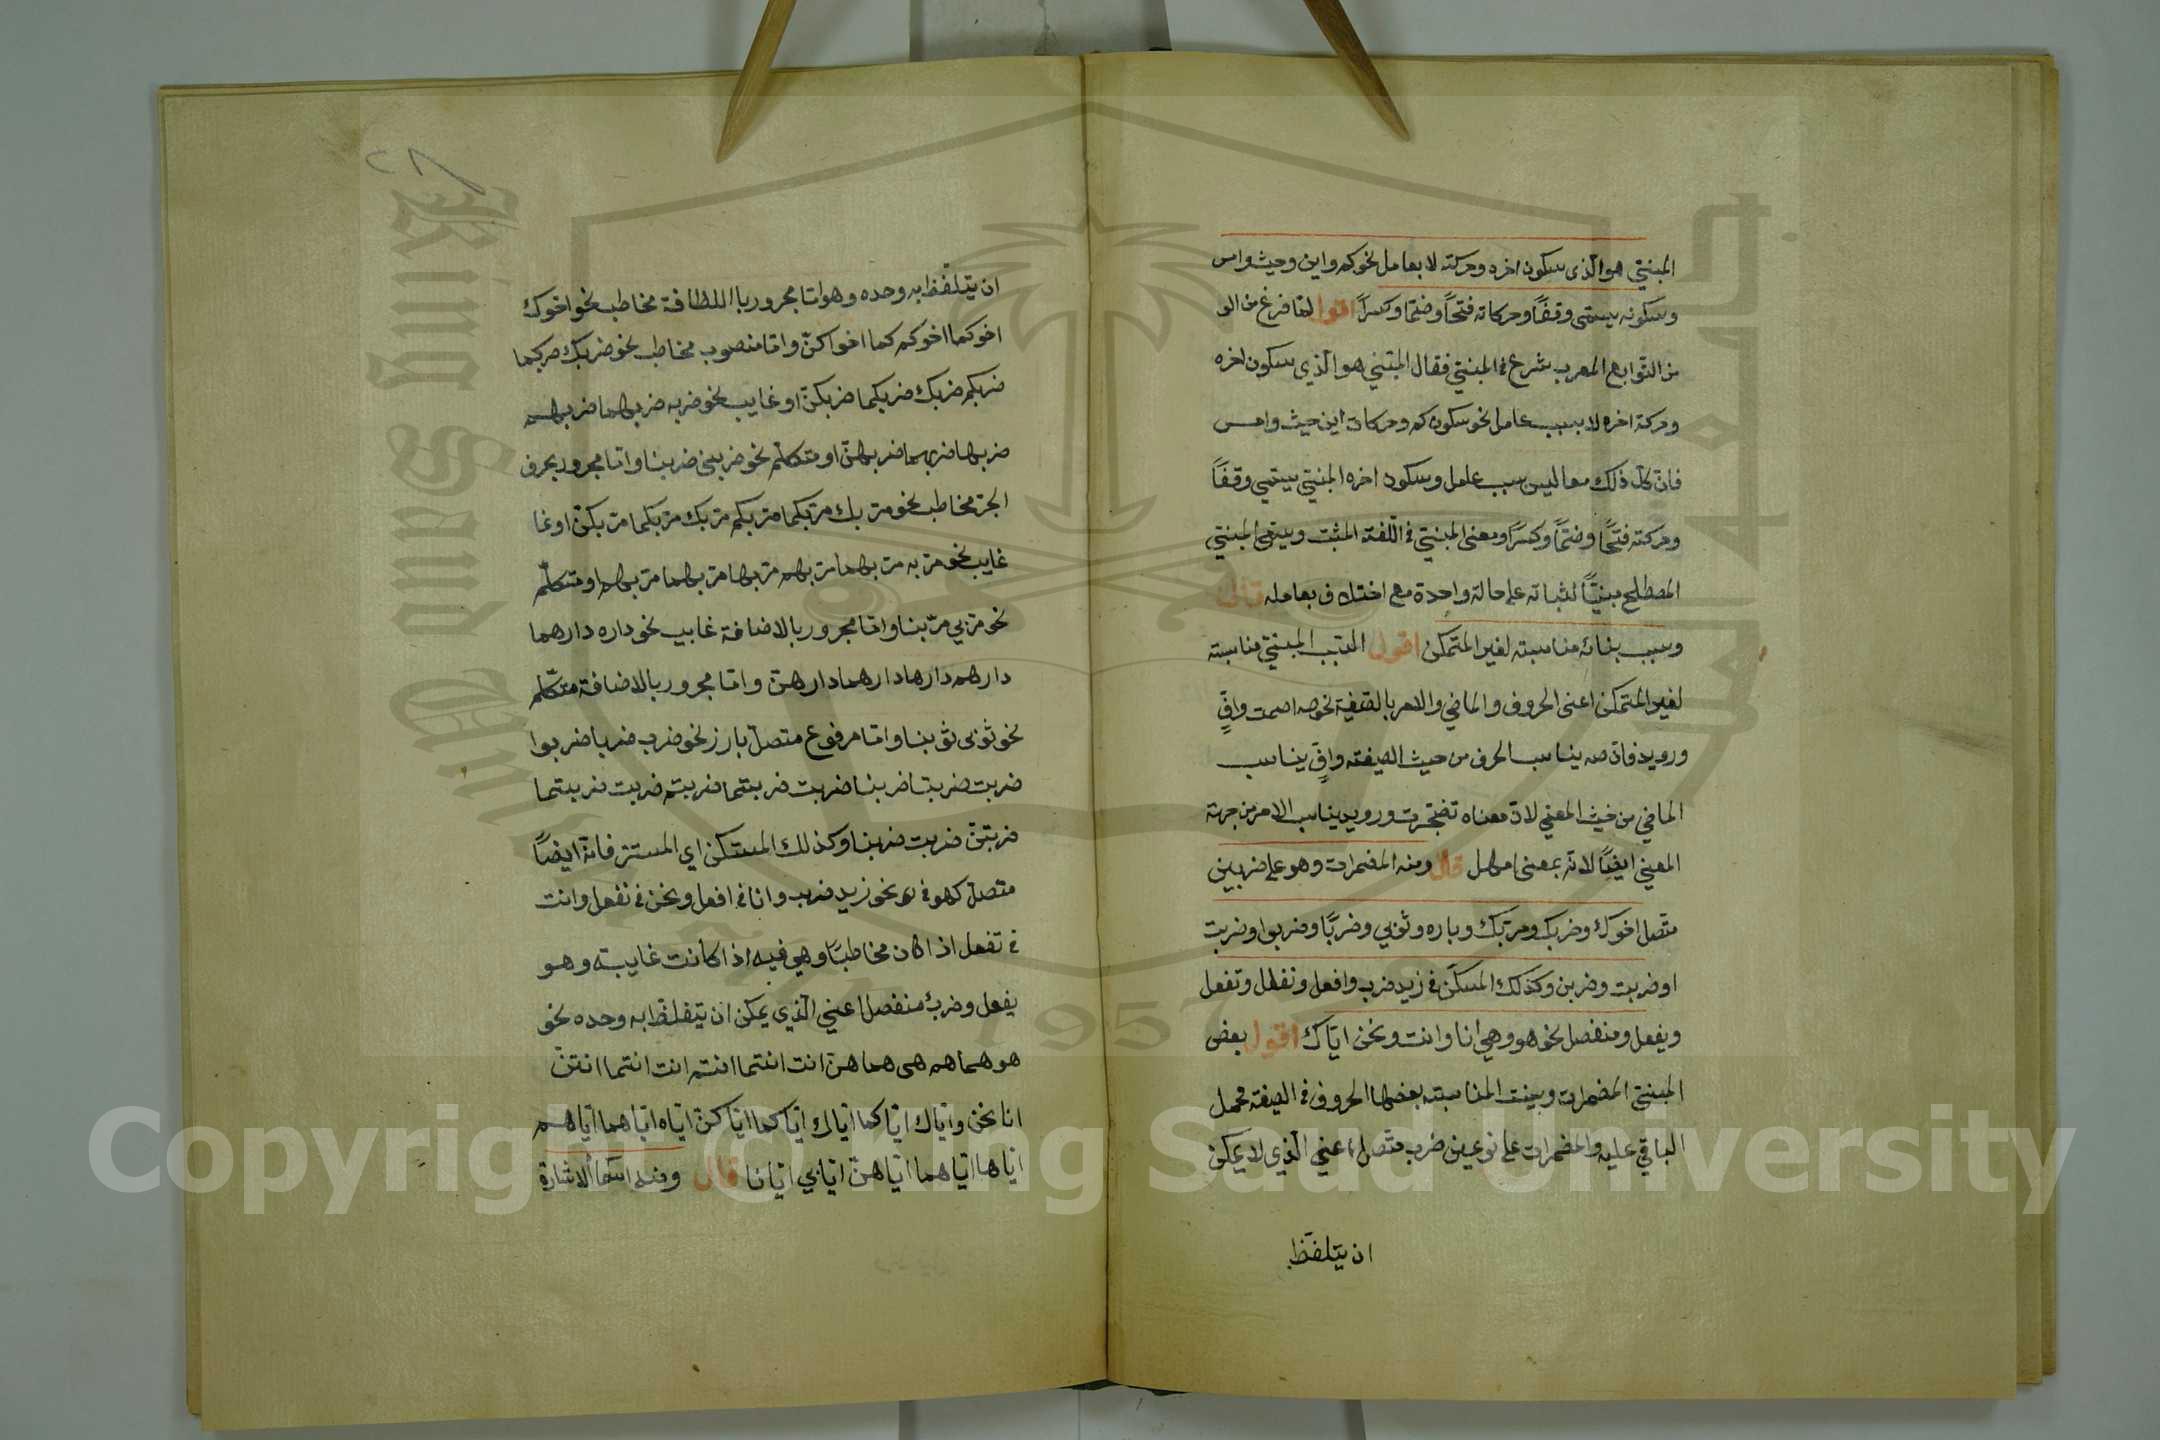 المبني هو الذى سكون اخره وحركته لا بعامل نحو كم واين وحيث وامس
وسكونه يسمى وقفاً وحركاته فتحاً وضمّا وكسراً اقول لما فرغ من
من التوابع المعرب شرع في المبني فقال المبني هو الذي سكون اخره
وحركة اخره لا بسبب عامل نحو سكون كم وحركات اين حيث وامس
فان كل ذلك مما ليس بسبب عامل وسكون اخره المبني يسمي وقفاً
وحركته فتحاً وضمّاً وكسراً ومعنى المبني في اللغة المثبت ويسمى المبني
المصطلح مبنيّاً لثباته على حالة واحدة مع اختلاف بعامله قال
وسبب بنائه مناسبته لغير المتمكن اقول السبب المبني مناسبته
لغير المتمكن اعنى الحروف والماضي والامر بالصيغة نحو صه اصمت وافٍ
ورويد فان صه يناسب الحرف من حيث الصيغته وافٍ يناسب
الماضي من حيث المعني لان معناه تضجرت ورويد يناسب الامر من جهة
المعني ايضاً لانه بمعنى امهل قال ومنه المضمرات وهو على ضربين
متصل اخوك وضربك ومرّبك وباره وثوبي وضربًا وضربوا وضربت
اوضربت وضربن وكذلك المسكن في زيد ضرب وافعل ونفعل وتفعل
ويفعل ومنفصل نحو هو وهي انا وانت ونحن اياك اقول بعض
المبني المضمرات وبينت المناسبته بعضها الحروف في الصيغة فحمل
الباقي عليه والمضمرات على نوعين ضرب متصل اعني الذي لا يمكن
ان يتلفظ
ان يتلفظ به وحده وهو اما مجرور بالاضافة مخاطب نحو اخوك
اخوكما اخوكم كما اخواكنّ واما منصوب مخاطب نحو ضربك ضربكما
ضربكم ضربك ضربكما ضربكنّ او غايب نحو ضربه ضربهما ضربهم
ضربها ضربهما ضربهنّ او متكلم نحو ضربني ضربنا واما مجرور بحرف
الجر مخاطب نحو مرّ بك مرّ بكما مرّ بكم مرّ بك مرّ بكما مرّ بكنّ او غا
غايب نحو مرّ به مرّ بهما مرّ بهم مرّ بها مرّ بهما مرّ بهن او متكلّم
نحو مرّ بي مرّ بنا واما مجرور بالاضافة غايب نحو داره دارهما
دارهم دارها دارهما دارهنّ واما مجرور بالاضافة متكلّم
نحو ثوبى ثوبنا واما مرفوع متصل بارز نحو ضرب ضربا ضربوا
ضربت ضربتا ضربنا ضربت ضربتما ضربتم ضربت ضربتما
ضربتنّ ضربت ضربنا وكذلك المستكن اي المستتر فانه ايضاً
متصل كهو في نحو زيد ضرب وانا في افعل ونحن في نفعل وانت
في تفعل اذا كان مخاطبًا وهي فيه اذا كانت غايبته وهو
يفعل وضربٌ منفصل اعني الّذي يمكن ان يتفلظ به وحده نحو
هو هما هم هى هما هنّ انت انتما انتم انت انتما انتنّ
انا نحن واياك اياكما اياك اياكما اياكنّ اياه اياهما اياهم
اياها اياهما اياهنّ اياي ايانا قال ومنه اسما الاشارة
King Saud University
1957
Copyright © King Saud University